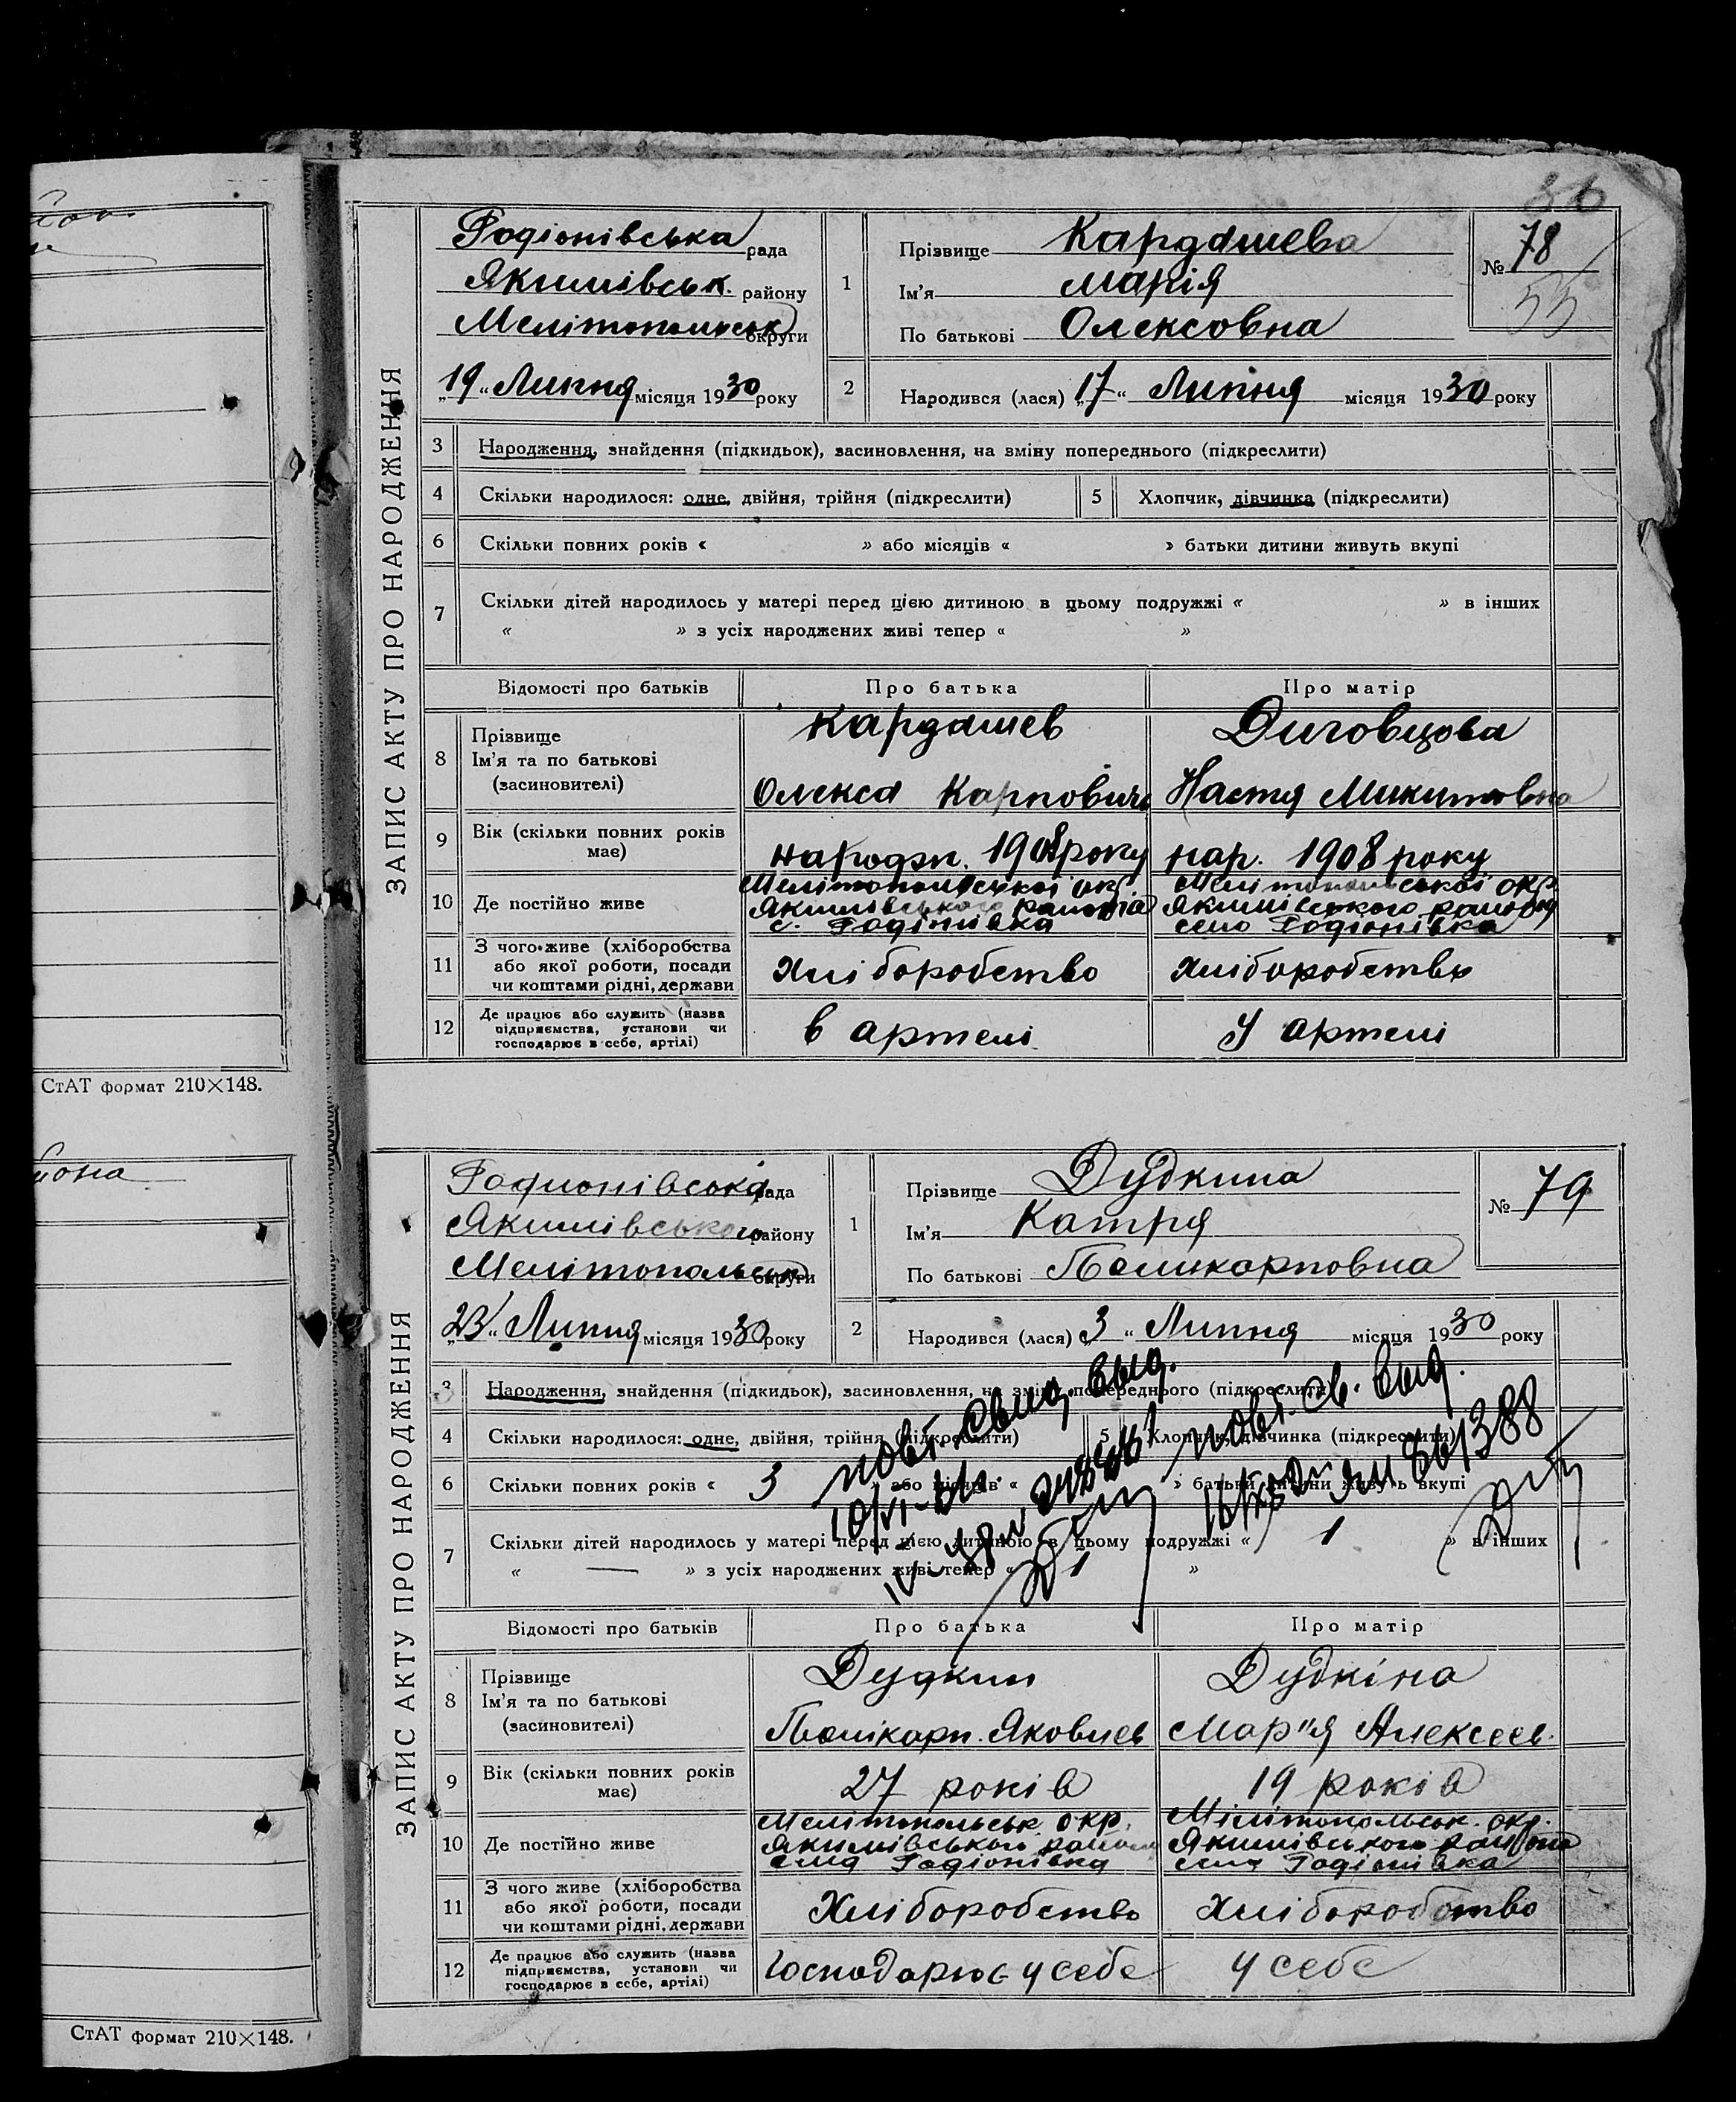 36
ЗАПИС АКТУ ПРО НАРОДЖЕННЯ
Родіонівська рада
Якимівськ. району
Мелітопольськ округи
„19“ Липня місяця 1930 року
1 Прізвище Кардашева
Ім'я Марія
По батькові Олексовна
№ 78
55
2 Народився (лася) „17“ Липня місяця 1930 року
3 Народження, знайдення (підкидьок), засиновлення, на зміну попереднього (підкреслити)
4 Скільки народилося: одне, двійня, трійня (підкреслити) 5 Хлопчик, дівчинка (підкреслити)
6 Скільки повних років « » або місяців « » батьки дитини живуть вкупі
7 Скільки дітей народилось у матері перед цією дитиною в цьому подружжі « » в інших
« » з усіх народжених живі тепер « »
Відомості про батьків Про батька Про матір
8 Прізвище
Ім'я та по батькові
(засиновителі)
Кардашев
Олекса Карпович
Диговцова
Настя Микитовна
9 Вік (скільки повних років
має)
народж. 1908 року
нар. 1908 року
10 Де постійно живе
Мелітопольської окр.
Якимівського района
с. Родіонівка
Мелітопольської окр
Якимівського района
село Родіонівка
11 З чого живе (хліборобства
або якої роботи, посади
чи коштами рідні, держави
Хліборобство
Хліборобство
12 Де працює або служить (назва
підприємства, установи чи
господарює в себе, артілі)
в артелі
У артелі
СтАТ формат 210×148.
йона
ЗАПИС АКТУ ПРО НАРОДЖЕННЯ
Родионівська рада
Якимівського району
Мелітопольськ округи
„23“ Липня місяця 1930 року
1 Прізвище Дудкина
Ім'я Катря
По батькові Поликарповна
№ 79
2 Народився (лася) „3“ Липня місяця 1930 року
3 Народження, знайдення (підкидьок), засиновлення, на зміну попереднього (підкреслити)
4 Скільки народилося: одне, двійня, трійня (підкреслити) 5 Хлопчик, дівчинка (підкреслити)
6 Скільки повних років « 3 » або місяців « » батьки дитини живуть вкупі
7 Скільки дітей народилось у матері перед цією дитиною в цьому подружжі « 1 » в інших
« — » з усіх народжених живі тепер « 1 »
повт. свид. выд.
повт. св. выд.
861388
Відомості про батьків Про батька Про матір
8 Прізвище
Ім'я та по батькові
(засиновителі)
Дудкин
Полікарп. Яковлев
Дудкіна
Мар"я Алексеев.
9 Вік (скільки повних років
має)
27 років
19 років
10 Де постійно живе
Мелітопольськ окр.
Якимівського района
села Родіонівка
Мілітопольськ. окр.
Якимівського района
села Родіонівка
11 З чого живе (хліборобства
або якої роботи, посади
чи коштами рідні, держави
Хліборобство
Хліборобство
12 Де працює або служить (назва
підприємства, установи чи
господарює в себе, артілі)
Господарює у себе
у себе
СтАТ формат 210×148.